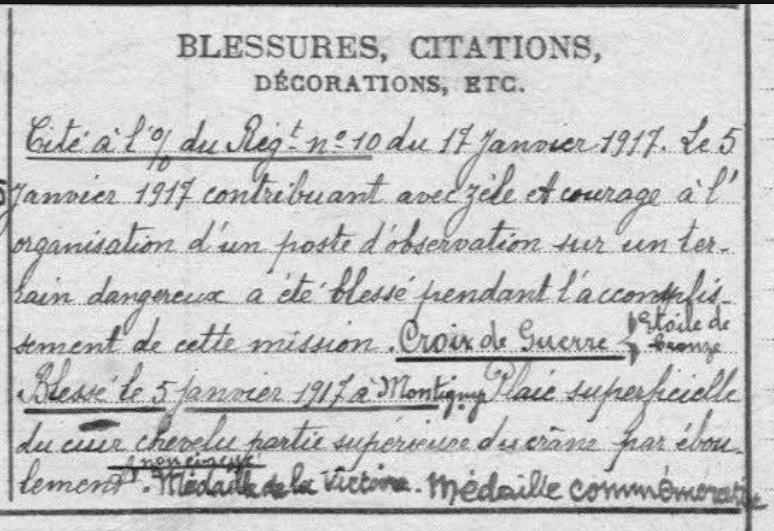 BLESSURES, CITATIONS,
DÉCORATIONS, ETC.
Cité à l'% du Régt n° 10 du 17 Janvier 1917. Le 5
Janvier 1917 contribuant avec zèle et courage à l'
organisation d'un poste d'observation sur un ter-
rain dangereux a été blessé pendant l'accomplis-
sement de cette mission. Croix de Guerre
Etoile de
bronze
Blessé le 5 janvier 1917 à Montigny Plaie superficielle
du cuir chevelu partie supérieure du crâne par ébou-
lement. Médaille de la Victoire. Médaille commémorative